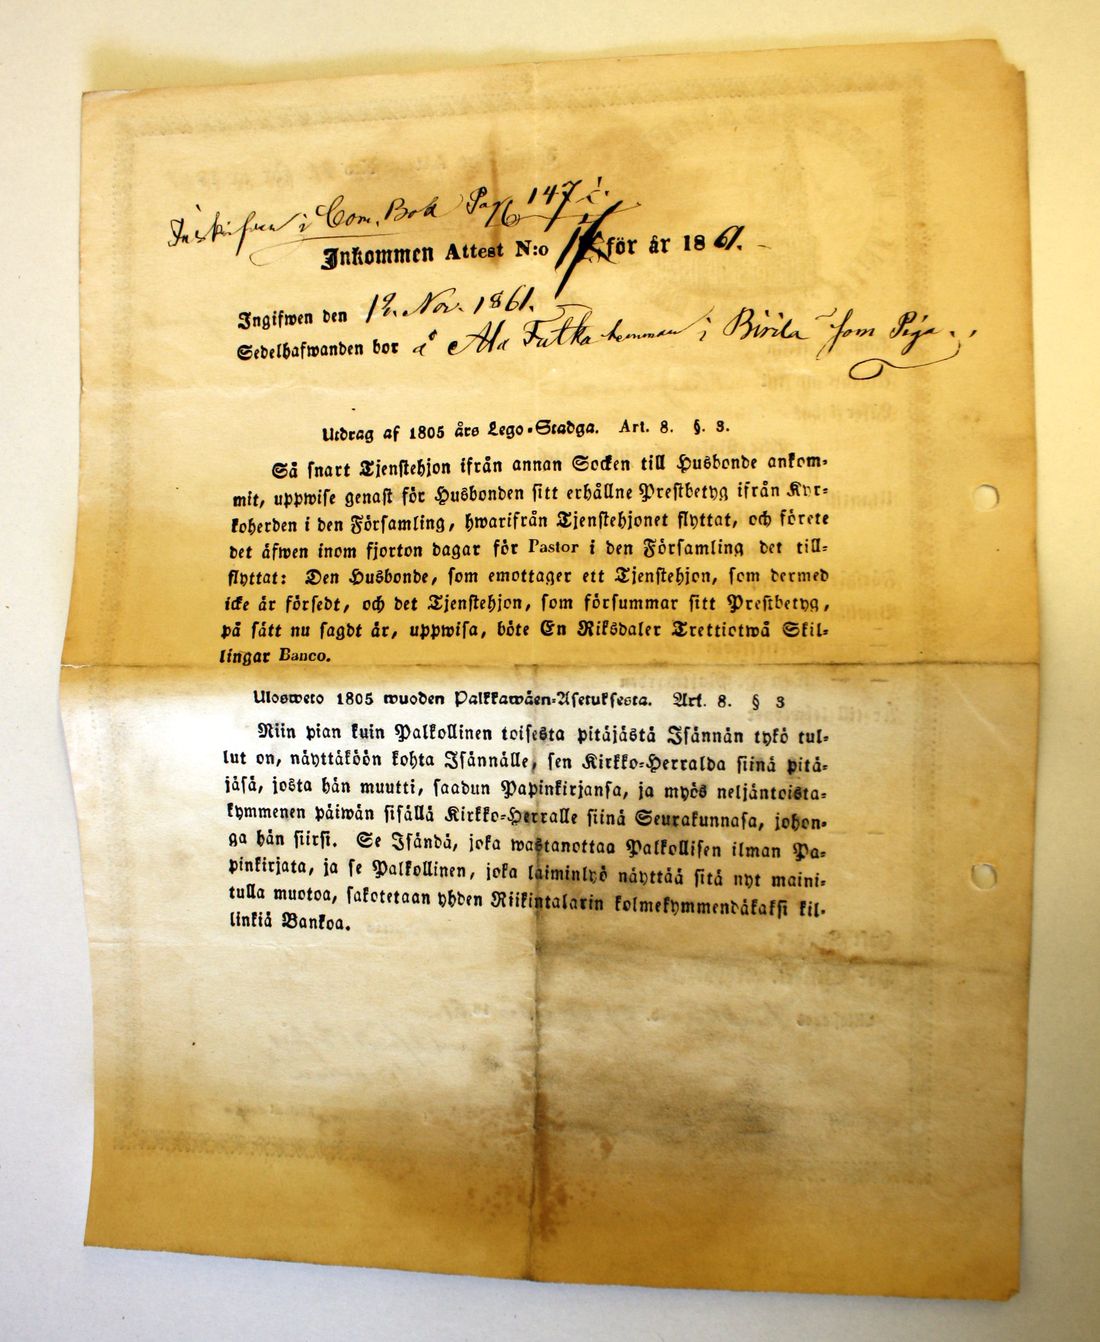 Inskrifven i Com. Bok Pag 147
Inkommen Attest N:o för år 1861.
Ingifwen den 12. Nov. 1861.
Sedelhafwanden bor å hemman i som Piga.
Utdrag af 1805 års Lego-Stadga. Art. 8. §. 3.
Så snart Tjenstehjon ifrån annan Socken till Husbonde ankom-
mit, uppwise genast för Husbonden sitt erhållne Prestbetyg ifrån Kyr-
koherden i den Församling, hwarifrån Tjenstehjonet flyttat, och förete
det äfwen inom fjorton dagar för Pastor i den Församling det till-
flyttat: Den Husbonde, som emottager ett Tjenstehjon, som dermed
icke är försedt, och det Tjenstehjon, som försummar sitt Prestbetyg,
på sätt nu sagdt är, uppwisa, böte En Riksdaler Trettiotwå Skil-
lingar Banco.
Ulosweto 1805 wuoden Palkkawäen-Asetuksesta. Art. 8. § 3
Niin pian kuin Palkollinen toisesta pitäjästä Isännän tykö tul-
lut on, näyttäköön kohta Isännälle, sen Kirkko-Herralda siinä pitä-
jäsä, josta hän muutti, saadun Papinkirjansa, ja myös neljäntoista-
kymmenen päiwän sisällä Kirkko-Herralle siinä Seurakunnasa, johon-
ga hän siirsi. Se Isändä, joka wastanottaa Palkollisen ilman Pa-
pinkirjata, ja se Palkollinen, joka laiminlyö näyttää sitä nyt maini-
tulla muotoa, sakotetaan yhden Riikintalarin kolmekymmendäkaksi kil-
linkiä Bankoa.